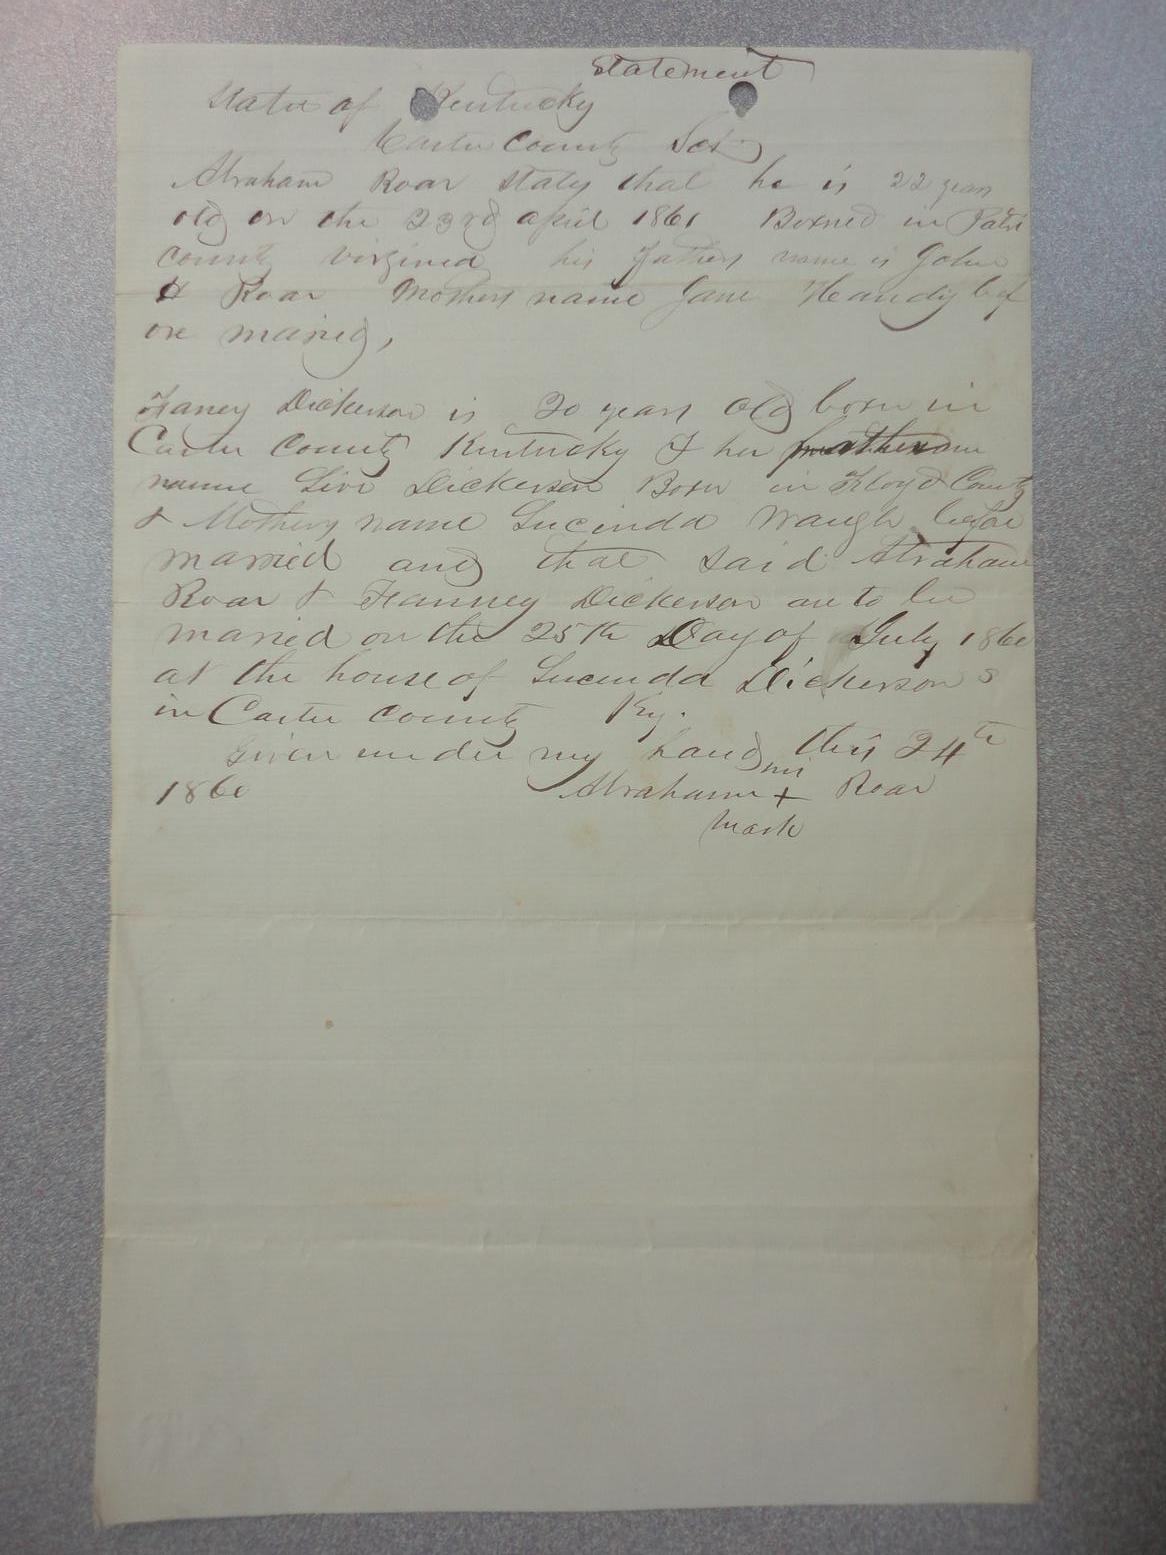 Statement
State of Kentucky
Carter County Sct
Abraham Roar staty that he is 22 years
old on the 23rd april 1861 Borned in Patri
County virginia his fathers name is John
H Roar Mothers name Jane Handy bef
ore maried,
Faney Dickerson is 20 years old born in
Carter County Kentucky & her
name Dickerson Born in Floyd County
& Mothers name Lucinda Waugh before
married and that said Abraham
Roar & Fanney Dickerson are to be
maried on the 25th Day of July 1860
at the house of Lucinda Dickersons
in Carter County Ky.
Given under my hand this 24th
1860 Abraham + Roar
mark